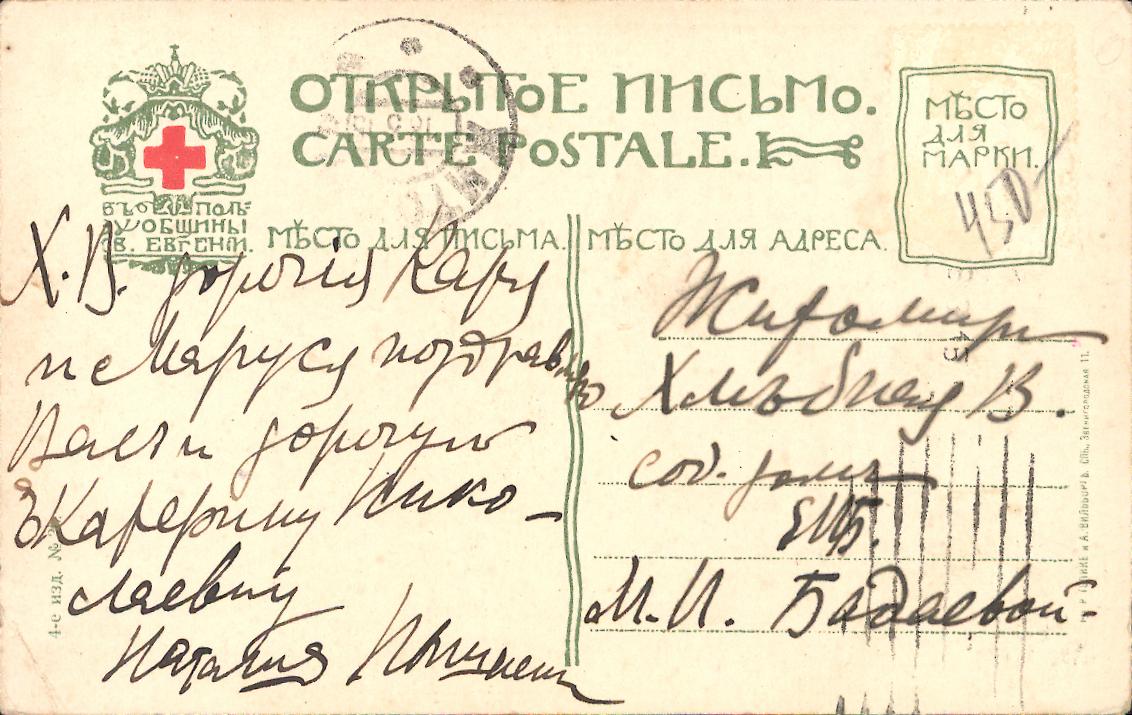 ОТКРЫТОЕ ПИСЬМО.
CARTE POSTALE.
МѢСТО
ДЛЯ
МАРКИ.
450
ВЪ ПОЛЬ-
ЗУ ОБЩИНЫ
СВ. ЕВГЕНІИ.
МѢСТО ДЛЯ ПИСЬМА.
МѢСТО ДЛЯ АДРЕСА.
Х. В. дорогія Катя
и Маруся поздравляю
Васъ и дорогую
Екатерину Нико-
лаевну
Наталия
Житомир
Хлѣбная В.
соб. домъ
М. И. Бадаевой
4-е изд. №
И А. ВИЛЬБОРГЪ. СПБ., Звенигородская 11.